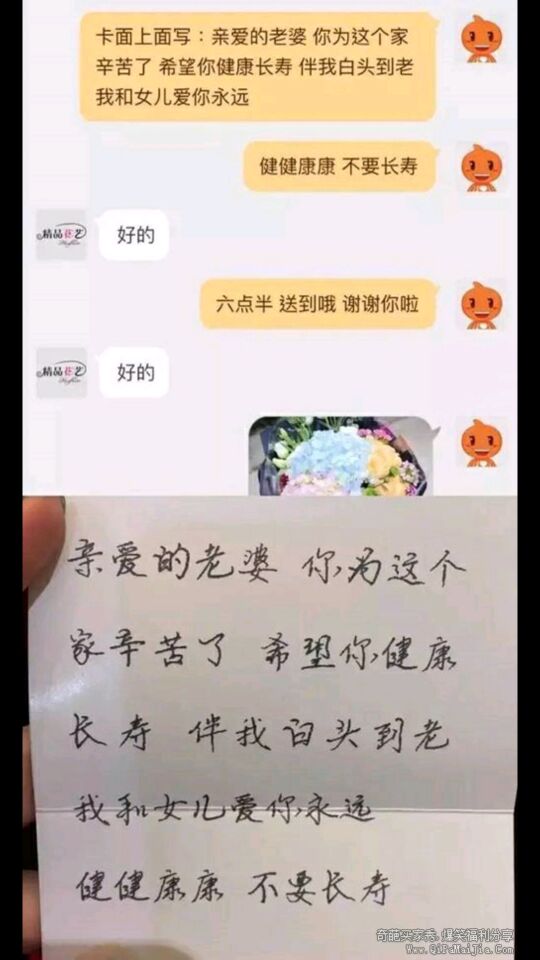 卡面上面写：亲爱的老婆 你为这个家
辛苦了 希望你健康长寿 伴我白头到老
我和女儿爱你永远
健健康康 不要长寿
精品花艺
好的
六点半 送到哦 谢谢你啦
精品花艺
好的
亲爱的老婆 你为这个
家辛苦了 希望你健康
长寿 伴我白头到老
我和女儿爱你永远
健健康康 不要长寿
奇葩买家秀，爆笑福利分享
www.QiPaMaiJia.Com